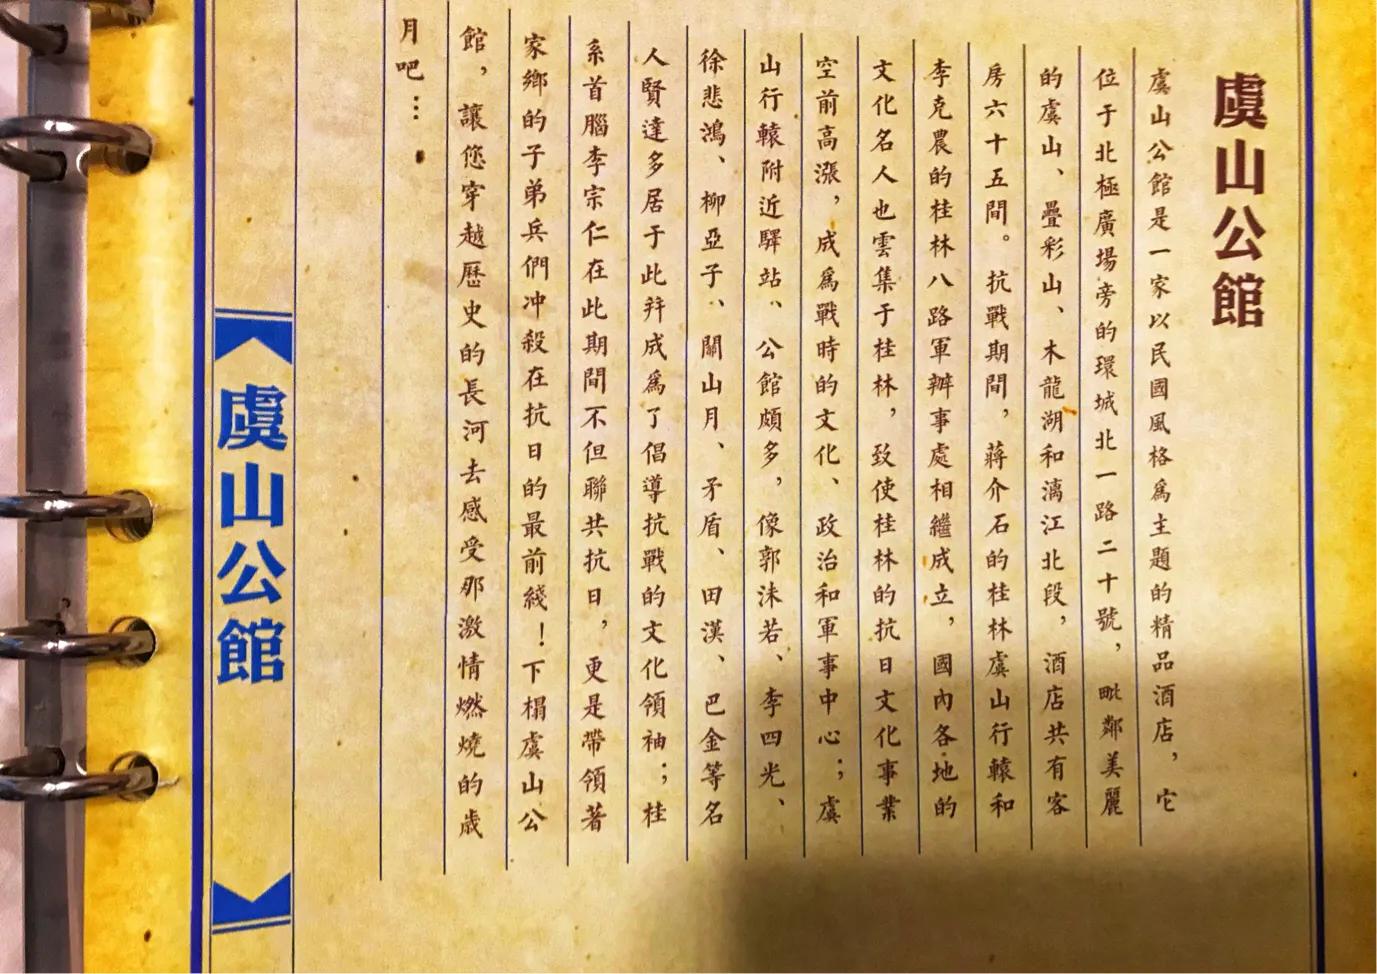 虞山公館
虞山公館是一家以民國風格為主題的精品酒店，它
位于北極廣場旁的環城北一路二十號，毗鄰美麗
的虞山、疊彩山、木龍湖和漓江北段，酒店共有客
房六十五間。抗戰期間，蔣介石的桂林虞山行轅和
李克農的桂林八路軍辦事處相繼成立，國內各地的
文化名人也雲集于桂林，致使桂林的抗日文化事業
空前高漲，成為戰時的文化、政治和軍事中心；虞
山行轅附近驛站、公館頗多，像郭沫若、李四光、
徐悲鴻、柳亞子、關山月、矛盾、田漢、巴金等名
人賢達多居于此并成為了倡導抗戰的文化領袖；桂
系首腦李宗仁在此期間不但聯共抗日，更是帶領著
家鄉的子弟兵們冲殺在抗日的最前綫！下榻虞山公
館，讓您穿越歷史的長河去感受那激情燃燒的歲
月吧…
虞山公館